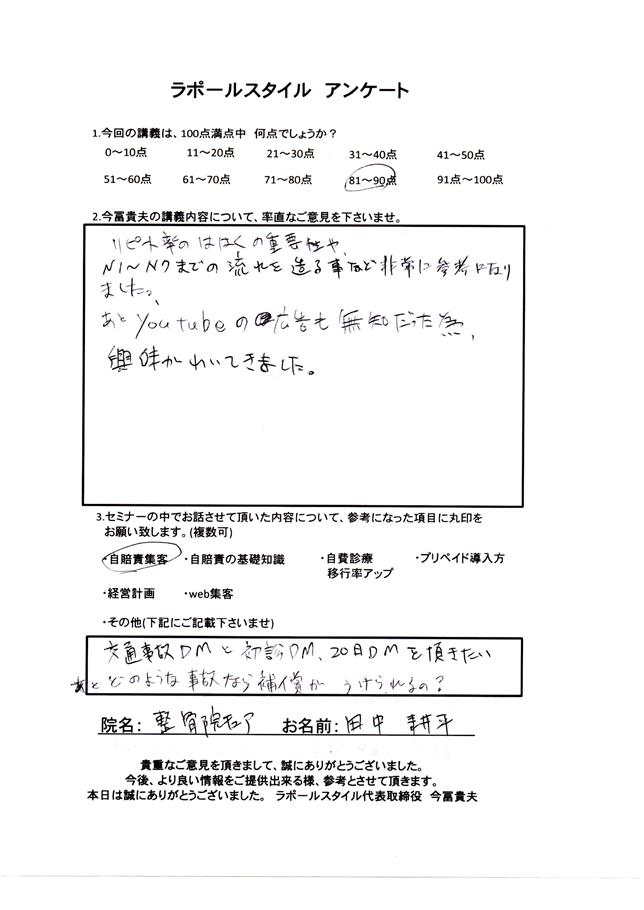 ラポールスタイル アンケート
1.今回の講義は、100点満点中 何点でしょうか？
0〜10点 11〜20点 21〜30点 31〜40点 41〜50点
51〜60点 61〜70点 71〜80点 81〜90点 91点〜100点
2.今冨貴夫の講義内容について、率直なご意見を下さいませ。
リピート率のはあくの重要性や、
N1〜N7までの流れを造る事など非常に参考になり
ました。
あとYoutubeの広告も無知だった為、
興味がわいてきました。
3.セミナーの中でお話させて頂いた内容について、参考になった項目に丸印を
お願い致します。(複数可)
・自賠責集客 ・自賠責の基礎知識 ・自費診療 ・プリペイド導入方
移行率アップ
・経営計画 ・web集客
・その他(下記にご記載下さいませ)
交通事故DMと初診DM、20日DMを頂きたい
あとどのような事故なら補償がうけられるの？
院名: 整骨院チュア お名前: 田中 耕平
貴重なご意見を頂きまして、誠にありがとうございました。
今後、より良い情報をご提供出来る様、参考とさせて頂きます。
本日は誠にありがとうございました。 ラポールスタイル代表取締役 今冨貴夫